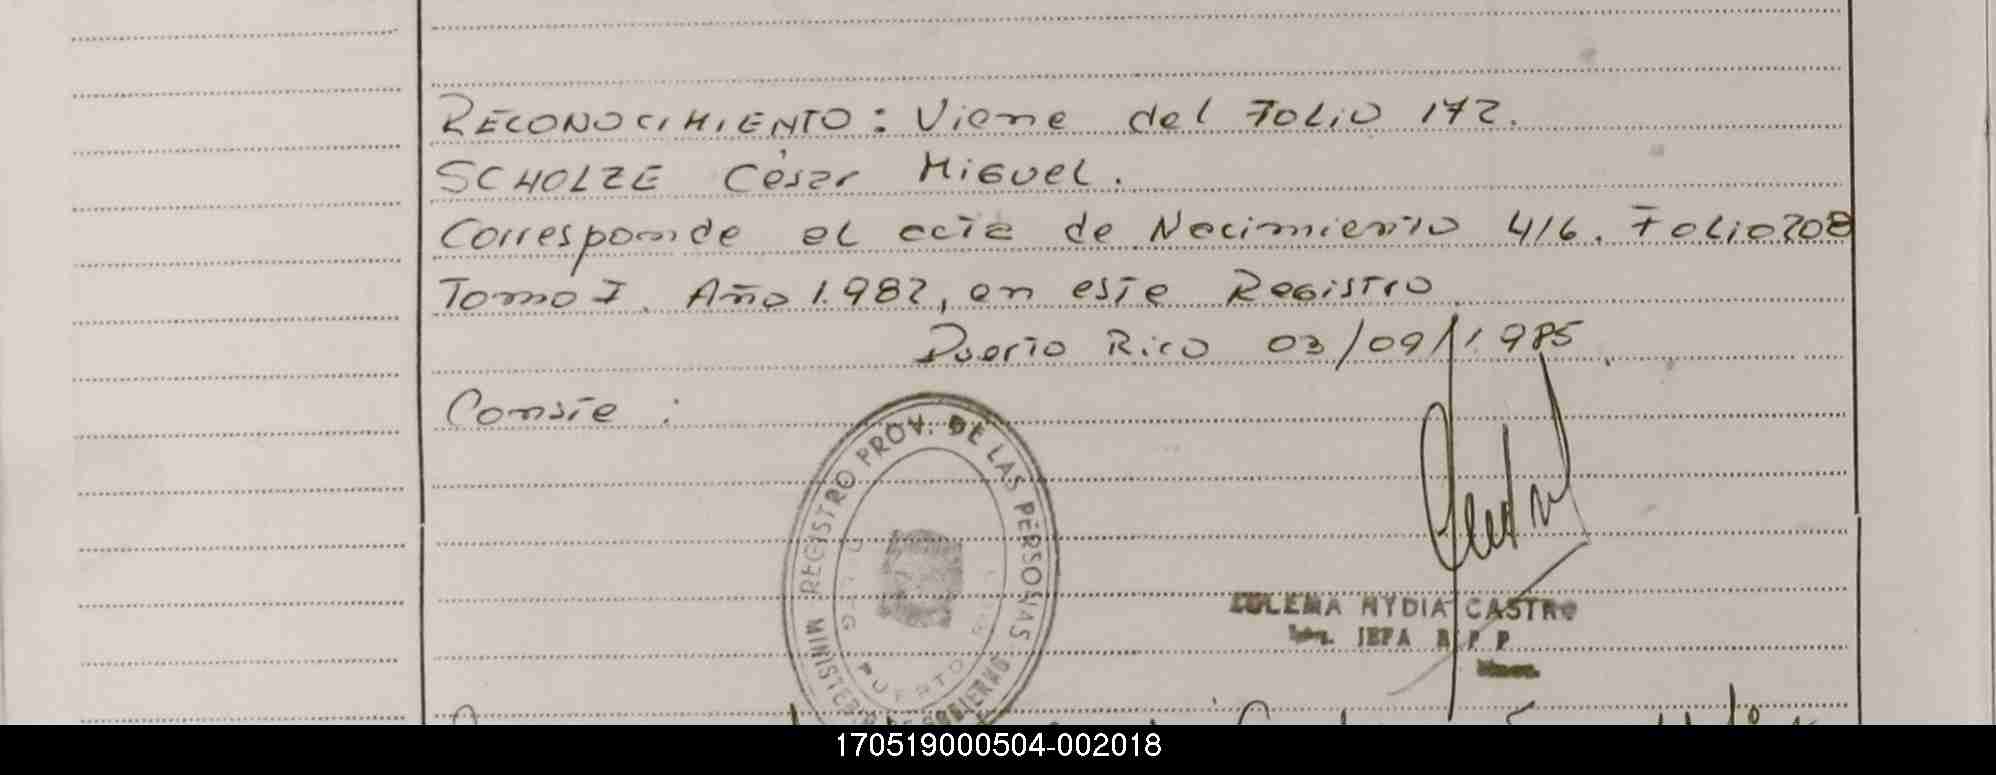 RECONOCIMIENTO: Viene del Folio 172.
SCHOLZE César Miguel.
Corresponde al acta de Nacimiento 416. Folio 208
Tomo I. Año 1.982, en este Registro.
Puerto Rico 03/09/1985.
Conste:
REGISTRO PROV. DE LAS PERSONAS
PUERTO
ZULEMA NYDIA CASTRO
JEFA R P P
170519000504-002018